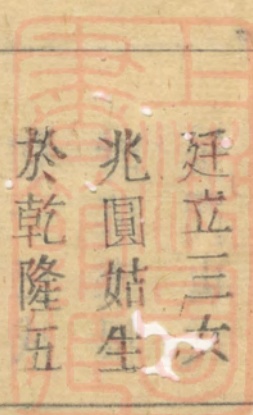 廷立三女
兆圓姑生
於乾隆五